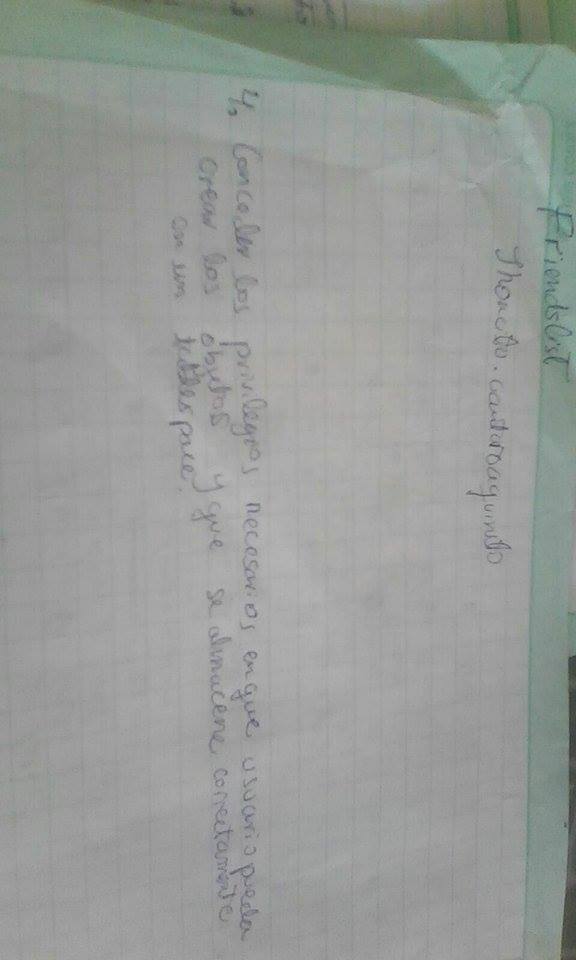 Friendslist
4, Conceder los privilegios necesarios en que usuario pueda
crear los objetos y que se almacene correctamente
en un tablespace.